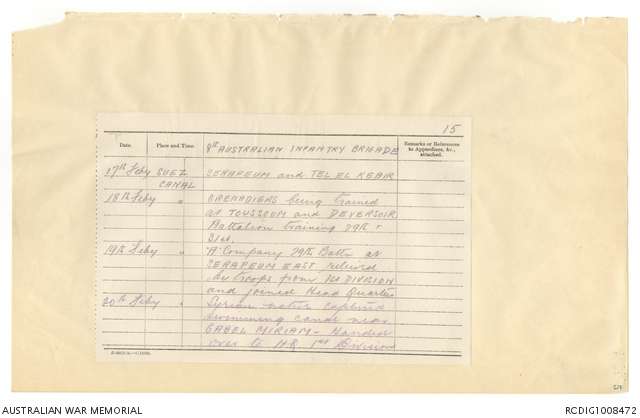 15
Date. Place and Time. 8th AUSTRALIAN INFANTRY BRIGADE Remarks or References to Appendices, &c., attached.
17th Feby SUEZ SERAPEUM and TEL EL KEBIR
CANAL
18th Feby " GRENADIERS being trained
at TOUSSOUM and DEVERSOIR
Battalion training 29th &
31st.
19th Feby " "A" Company 29th Battn at
SERAPEUM EAST relieved
by troops from 1st DIVISION
and joined Head Quarters
20th Feby " Syrian native captured
swimming canal near
GABEL MIRIAM - Handed
over to H.Q. 1st Division
AUSTRALIAN WAR MEMORIAL
RCDIG1008472